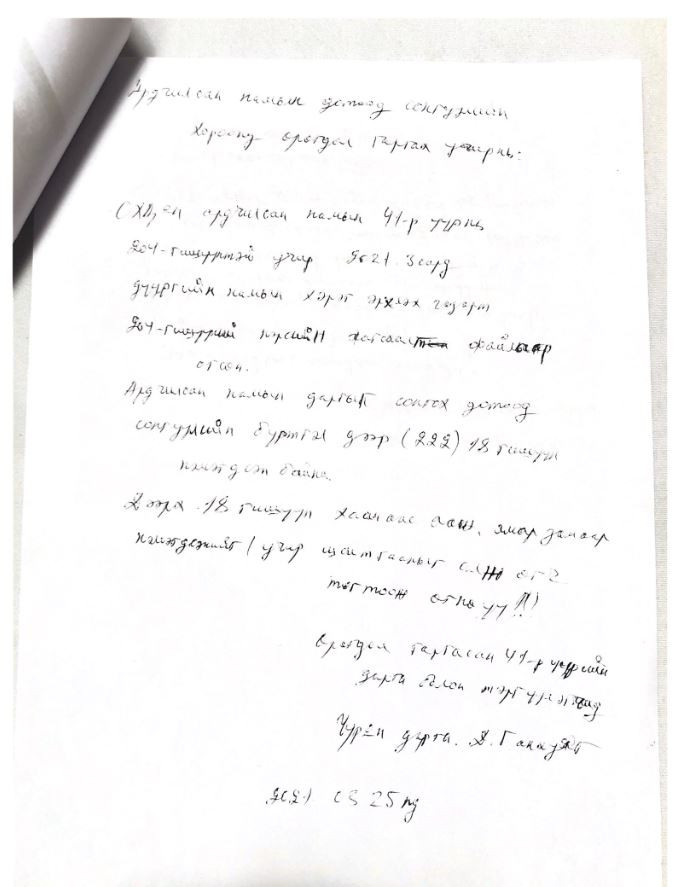 Ардчилсан намын дотоод сонгуулийн
Хороонд өргөдөл гаргах учир нь:
СХД-ийн ардчилсан намын 41-р үүрнь
204-гишүүнтэй учир 2021. 3 сард
дүүргийн намын хэрэг эрхлэх газарт
204-гишүүний нэрсийн жагсаалт файлаар
өгсөн.
Ардчилсан намын даргыг сонгох дотоод
сонгуулийн бүртгэл дээр (222) 18 гишүүн
нэмэгдсэн байна.
Дээрх 18 гишүүн хаанаас гарч, ямар замаар
нэмэгдсэнийг / учир шалтгааныг олж
тогтоож өгнө үү!!!
Өргөдөл гаргасан 41-р үүрийн
дарга болон тэргүүлэгчид
Үүрийн дарга. Д.
2021 03 25нд